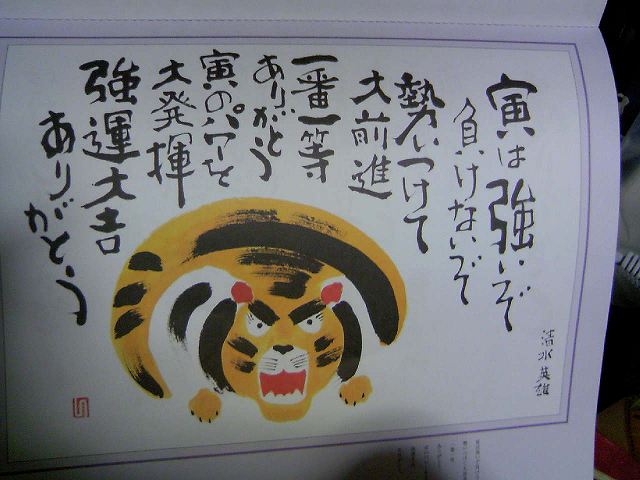 寅は強いぞ
負けないぞ
勢いつけて
大前進
一番一等
ありがとう
寅のパワーを
大発揮
強運大吉
ありがとう
清水英雄